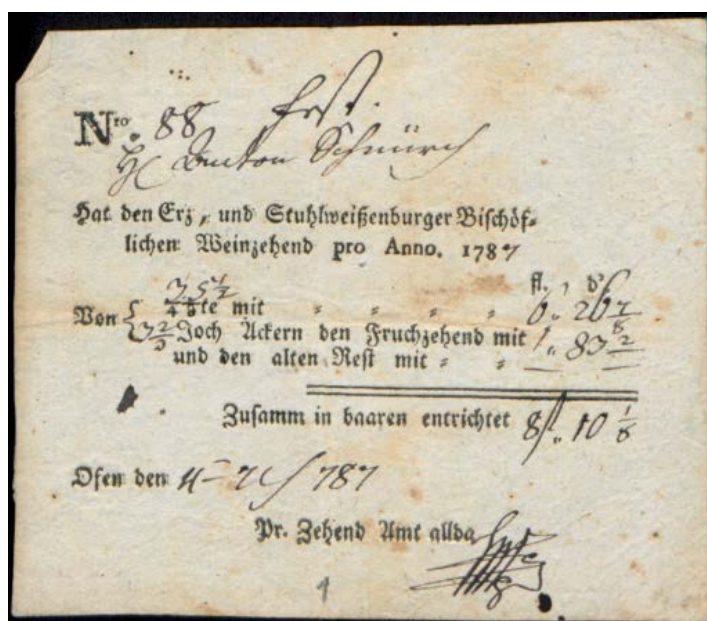 Nro. 88
H Anton Schnürch
Hat den Erz- und Stuhlweißenburger Bischöf-
lichen Weinzehend pro Anno. 1787
fl. d
Von te mit 6. 26 7/8
Joch Äckern den Fruchzehend mit 1. 83 2/8
und den alten Rest mit
Zusamm in baaren entrichtet 8 fl. 10 1/8
Ofen den 787
Pr. Zehend Amt allda